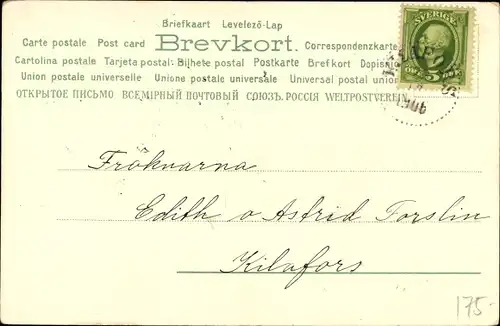 Briefkaart Levelező-Lap
Carte postale Post card Brevkort. Correspondenzkarte
Cartolina postale Tarjeta postal Bilhete postal Postkarte Brefkort Dopisnice
Union postale universelle Unione postale universale Universal postal union
ОТКРЫТОЕ ПИСЬМО ВСЕМІРНЫЙ ПОЧТОВЫЙ СОЮЗЪ. РОССІЯ WELTPOSTVEREIN
SVERIGE
5 ÖRE
1906
Fröknarna
Edith o Astrid Forslin
Kilafors
175-